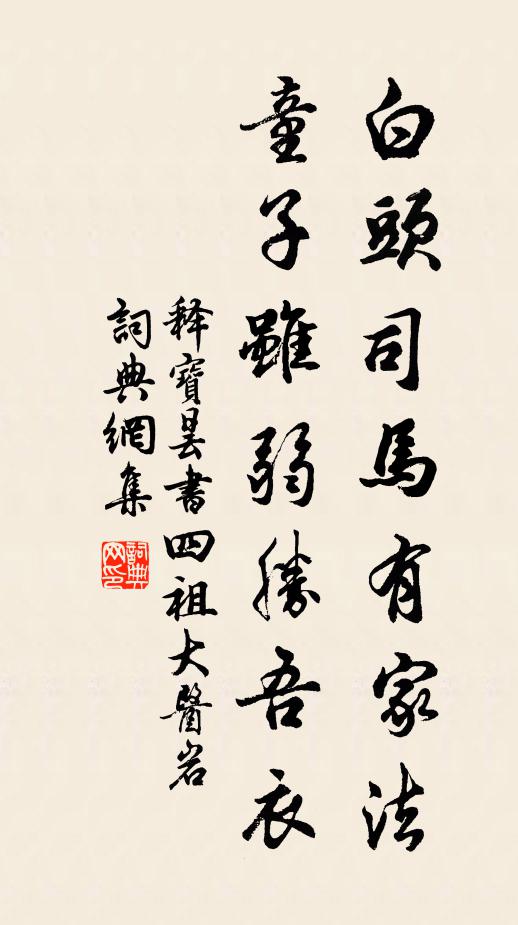 白頭司馬有家法
童子雖弱勝吾衣
释寶昙書四祖大醫岩
詞典網集
詞典网印